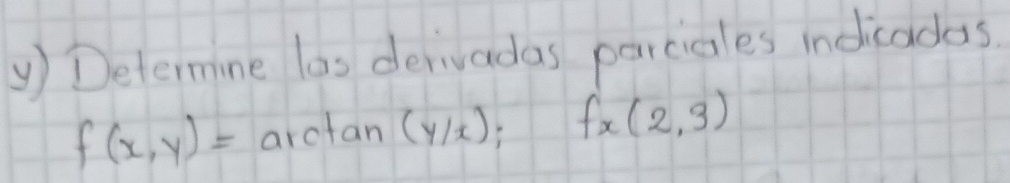 y) Determine las derivadas parciales indicadas.
f(x,y) = arctan (y/x); fx(2,3)